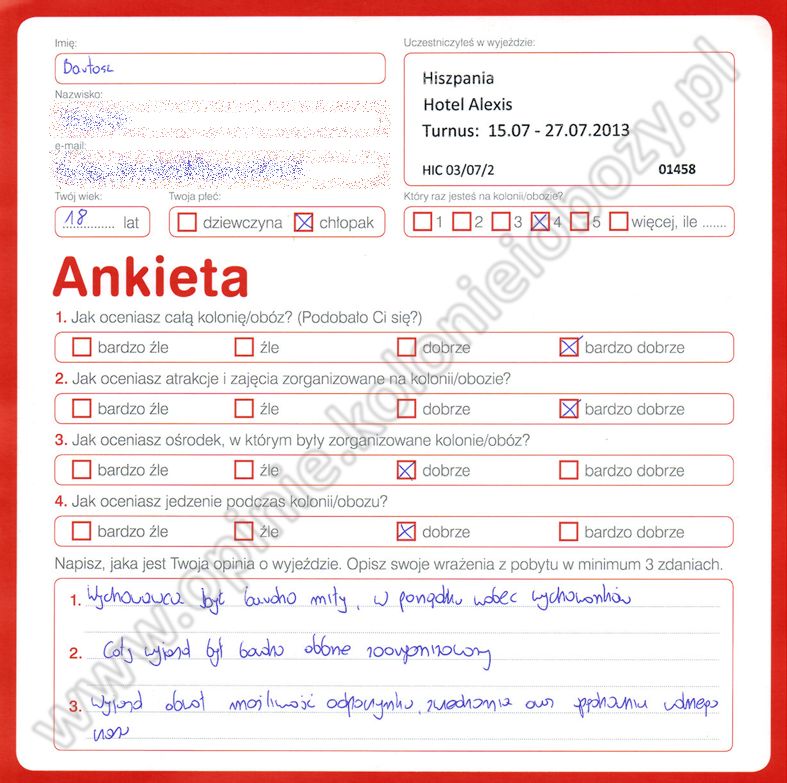 Imię:
Bartosz
Nazwisko:
e-mail:
Twój wiek:
18 lat
Twoja płeć:
dziewczyna chłopak
Uczestniczyłeś w wyjeździe:
Hiszpania
Hotel Alexis
Turnus: 15.07 - 27.07.2013
HIC 03/07/2 01458
Który raz jesteś na kolonii/obozie?
1 2 3 4 5 więcej, ile .......
Ankieta
1. Jak oceniasz całą kolonię/obóz? (Podobało Ci się?)
bardzo źle źle dobrze bardzo dobrze
2. Jak oceniasz atrakcje i zajęcia zorganizowane na kolonii/obozie?
bardzo źle źle dobrze bardzo dobrze
3. Jak oceniasz ośrodek, w którym były zorganizowane kolonie/obóz?
bardzo źle źle dobrze bardzo dobrze
4. Jak oceniasz jedzenie podczas kolonii/obozu?
bardzo źle źle dobrze bardzo dobrze
Napisz, jaka jest Twoja opinia o wyjeździe. Opisz swoje wrażenia z pobytu w minimum 3 zdaniach.
1. Wychowawca był bardzo miły, w porządku wobec wychowanków
2. Cały wyjazd był bardzo dobrze zorganizowany
3. Wyjazd dawał możliwość odpoczynku, zwiedzania oraz spędzania wolnego
www.opinie.kolonieiobozy.pl